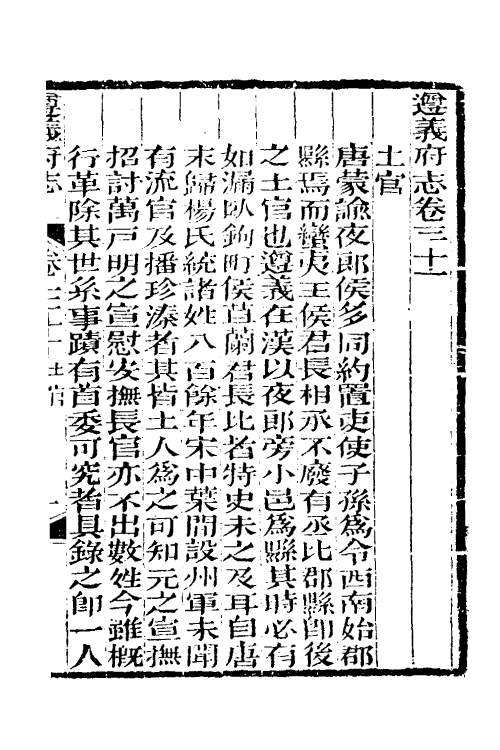 遵義府志卷三十一
土官
唐蒙諭夜郎侯多同約置吏使子孫爲令西南始郡
縣焉而蠻夷王侯君長相承不廢有丞比郡縣卽後
之土官也遵義在漢以夜郎旁小邑爲縣其時必有
如漏臥鉤町侯苴蘭君長比者特史未之及耳自唐
末歸楊氏統諸姓八百餘年宋中葉開設州軍未聞
有流官及播珍溱者其皆土人爲之可知元之宣撫
招討萬戸明之宣慰安撫長官亦不出數姓今雖槪
行革除其世系事蹟有首委可究者具錄之卽一人
遵義府志 卷三十一 土官 一